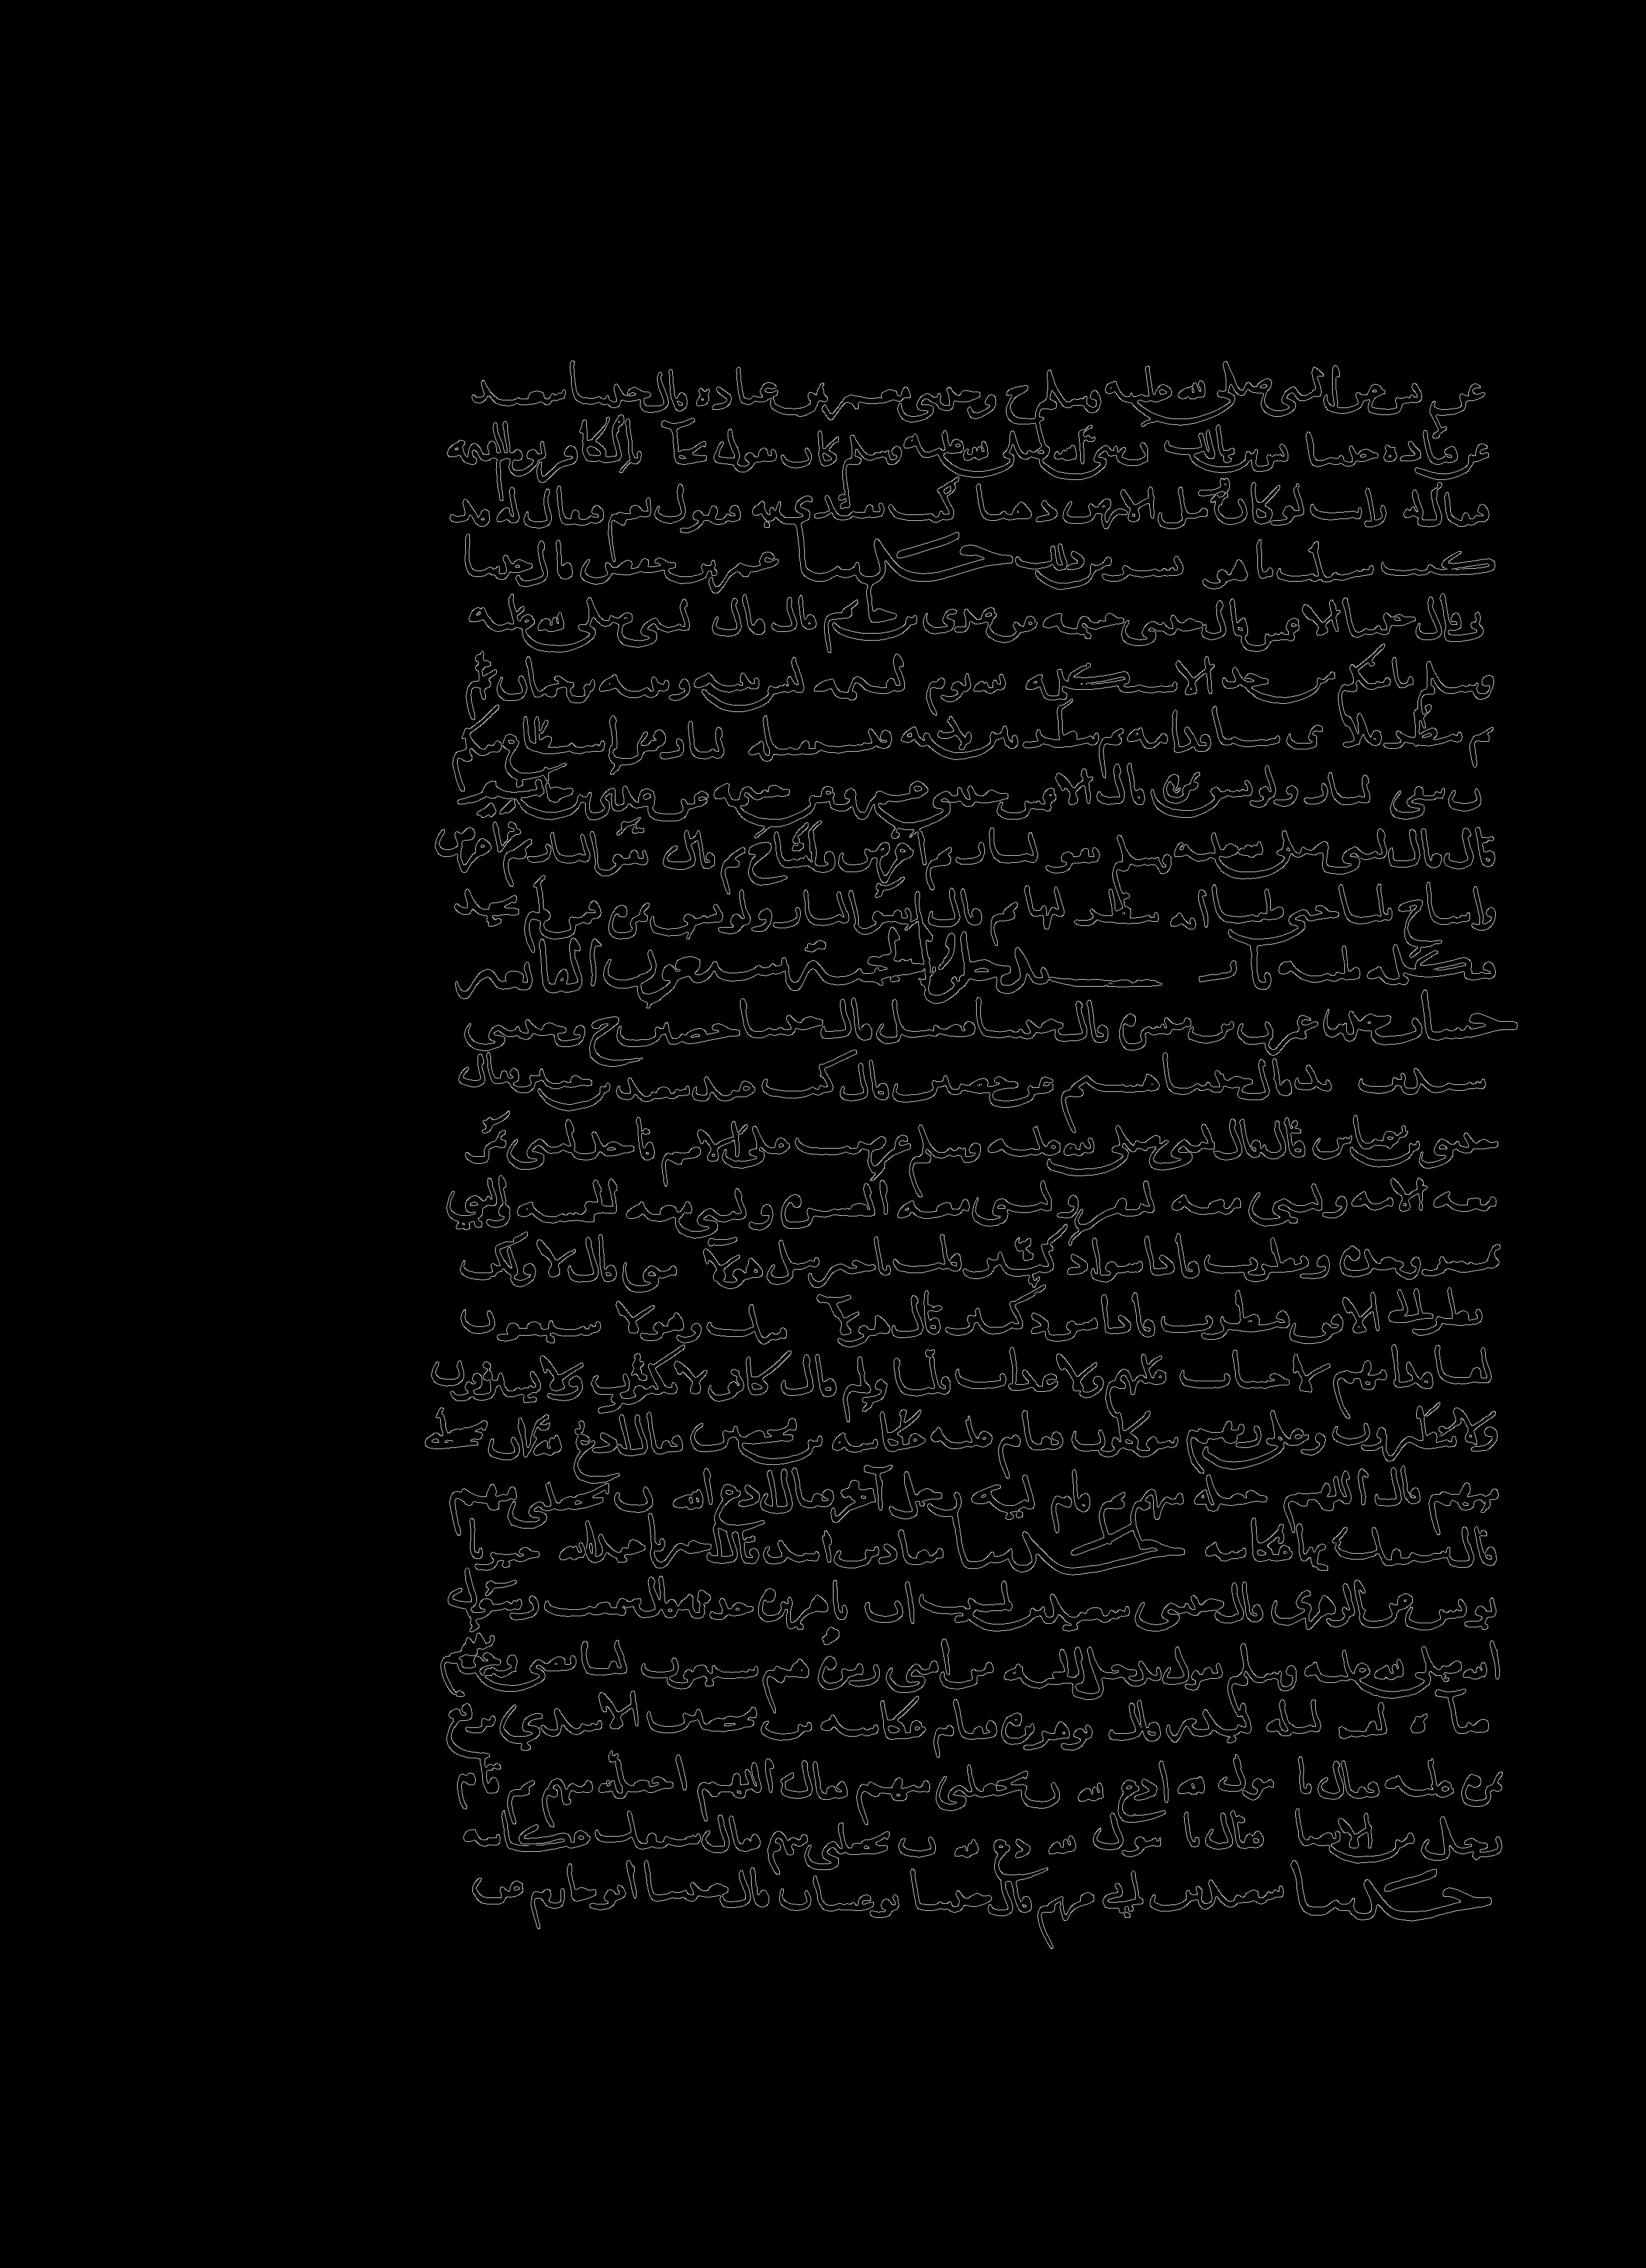 عن انس عن النبي صلى الله عليه وسلم ح وحدثني معمر بن عبادة قال حدثنا سعيد
عن قتادة حدثنا انس بن مالك ان نبي الله صلى الله عليه وسلم كان يقول يجآ بالكافر يوم القيمة
فيقال له ارايت لو كان لك مل الارض ذهبا اكنت تفتدي به فيقول نعم فيقال له قد
كنت سئلت ما هو ايسر من ذلك حدثنا عمر بن حفص قال حدثنا
ابي قال حدثنا الاعمش قال حدثني خيثمة عن عدي بن حاتم قال قال النبي صلى الله عليه
وسلم ما منكم من احد الا سيكلمه الله يوم القيمة ليس بينه وبينه ترجمان ثم
ثم ينظر فلا يرى شيئا قدامه ثم ينظر بين يديه فتستقبله النار فمن استطاع منكم
ان يتقي النار ولو بشق تمرة قال الاعمش حدثني عمرو عن خيثمة عن عدي بن حاتم
قال قال النبي صلى الله عليه وسلم اتقوا النار ثم اعرض واشاح ثم قال اتقوا النار ثم اعرض
واشاح ثلثا حتى ظننا انه ينظر اليها ثم قال اتقوا النار ولو بشق تمرة فمن لم يجد
فبكلمة طيبة باب يدخل الجنة سبعون الفا بغير
حساب حدثنا عمران بن ميسرة قال حدثنا ابن فضيل قال حدثنا حصين ح وحدثني
اسيد بن زيد قال حدثنا هشيم عن حصين قال كنت عند سعيد بن جبير فقال
حدثني ابن عباس قال قال النبي صلى الله عليه وسلم عرضت علي الامم فاجد النبي يمر
معه الامة والنبي معه النفر والنبي معه العشرة والنبي معه الخمسة والنبي
يمر وحده ونظرت فاذا سواد كثير قلت يا جبريل هولآ امتي قال لا ولكن
انظر الى الافق فنظرت فاذا سواد كثير قال هولآ امتك وهولا سبعون
الفا قدامهم لا حساب عليهم ولا عذاب قلت ولم قال كانوا لا يكتوون ولا يسترقون
ولا يتطيرون وعلى ربهم يتوكلون فقام اليه عكاشة بن محصن فقال ادع الله ان يجعلني
منهم قال اللهم اجعله منهم ثم قام اليه رجل آخر فقال ادع الله ان يجعلني منهم
قال سبقك بها عكاشة حدثنا معاذ بن اسد قال اخبرنا عبد الله اخبرنا
يونس عن الزهري قال حدثني سعيد بن المسيب ان ابا هريرة حدثه قال سمعت رسول
الله صلى الله عليه وسلم يقول يدخل الجنة من امتي زمرة هم سبعون الفا تضيء وجوههم
اضآة القمر ليلة البدر قال ابو هريرة فقام عكاشة بن محصن الاسدي يرفع
نمرة عليه فقال يا رسول الله ادع الله ان يجعلني منهم فقال اللهم اجعله منهم ثم قام
رجل من الانصار فقال يا رسول الله ادع الله ان يجعلني منهم فقال سبقك عكاشة
حدثنا سعيد بن ابي مريم قال حدثنا ابو غسان قال حدثنا ابو حازم عن